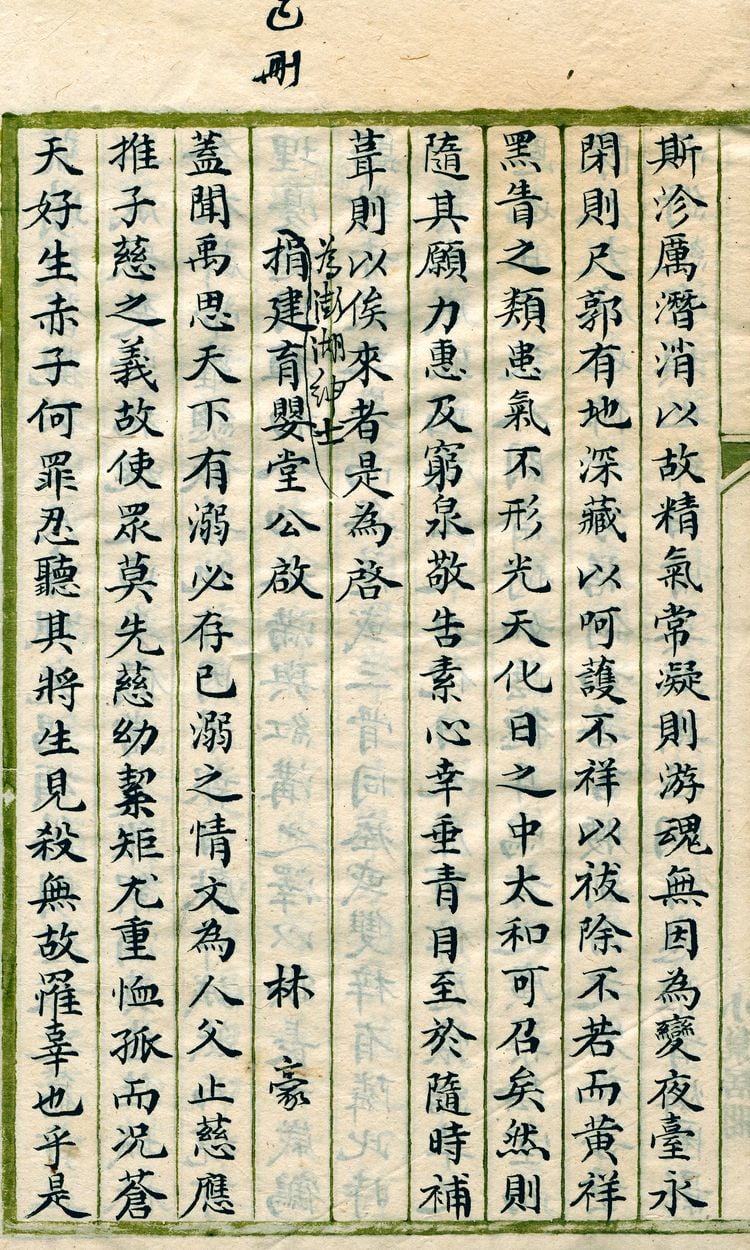 已刪
斯沴厲潛消以故精氣常凝則游魂無因為變夜臺永
閉則尺郭有地深藏以呵護不祥以祓除不若而黃祥
黑眚之類患氣不形光天化日之中太和可召矣然則
隨其願力惠及窮泉敬告素心幸垂青目至於隨時補
葺則以俟來者是為啓
為澎湖紳士
捐建育嬰堂公啟 林豪
蓋聞禹思天下有溺必存已溺之情文為人父止慈應
推子慈之義故使眾莫先慈幼絜矩尤重恤孤而况蒼
天好生赤子何罪忍聽其將生見殺無故罹辜也乎是